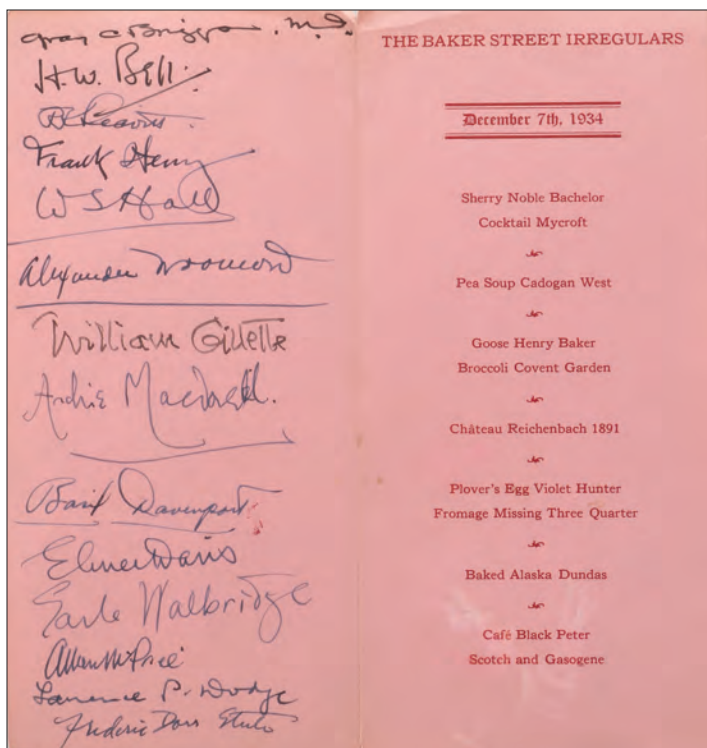 Gray C Briggs, M.D.
H.W. Bell
Leavitt
Frank Henry
W S Hall
Alexander Woollcott
William Gillette
Archie Macdonell.
Basil Davenport
Elmer Davis
Earle Walbridge
Allan M Price
Laurence P. Dodge
Frederic Dorr Steele
THE BAKER STREET IRREGULARS
December 7th, 1934
Sherry Noble Bachelor
Cocktail Mycroft
Pea Soup Cadogan West
Goose Henry Baker
Broccoli Covent Garden
Château Reichenbach 1891
Plover's Egg Violet Hunter
Fromage Missing Three Quarter
Baked Alaska Dundas
Café Black Peter
Scotch and Gasogene